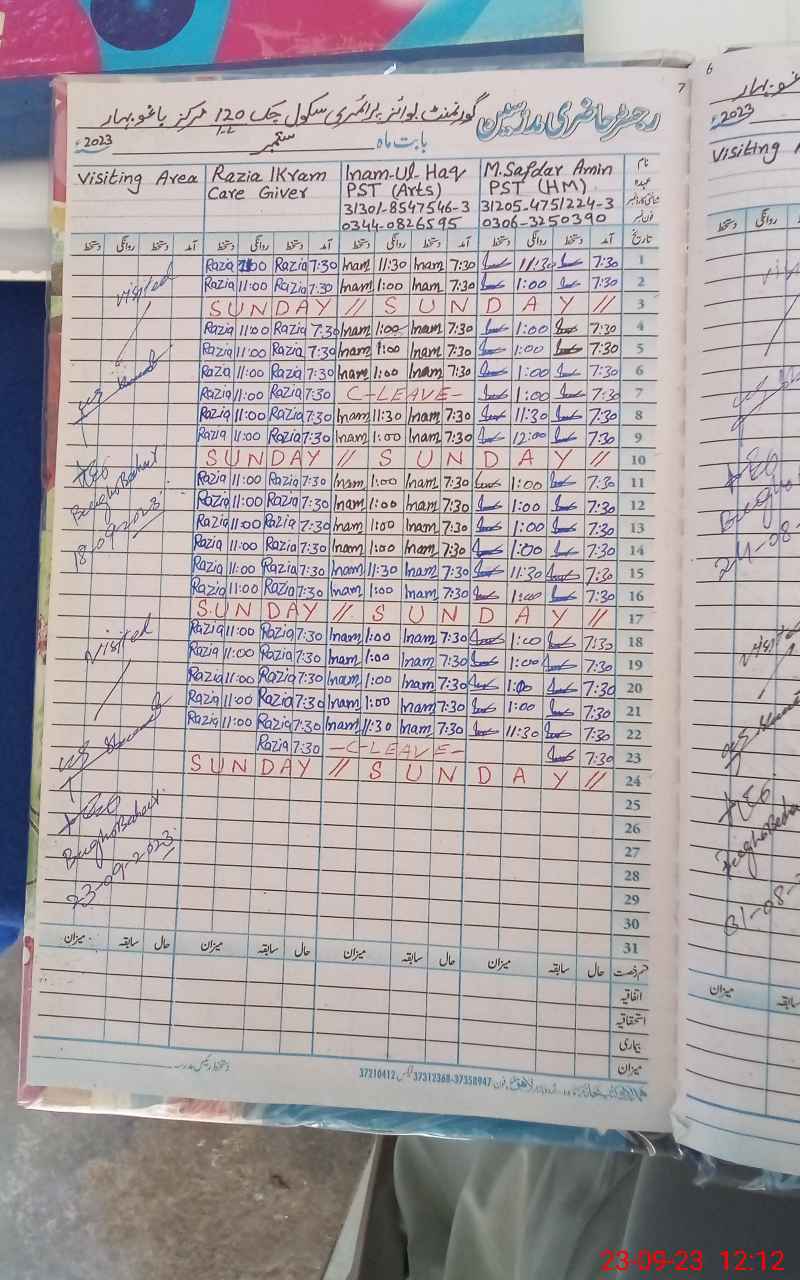 7
رجسٹر حاضری مدرسین گورنمنٹ بوائز پرائمری سکول چک 120 مرکز باغو بہار
بابت ماہ ستمبر 2023ء
نام
عہدہ
شناختی کارڈ نمبر
فون نمبر
M. Safdar Amin
PST (HM)
31205-4751224-3
0306-3250390
Inam-Ul-Haq
PST (Arts)
31301-8547546-3
0344-0826595
Razia IKram
Care Giver
Visiting Area
تاریخ آمد دستخط روانگی دستخط آمد دستخط روانگی دستخط آمد دستخط روانگی دستخط آمد دستخط روانگی دستخط
Razia 11:00 Razia 7:30 Inam 11:30 Inam 7:30 11:30 7:30 1
Razia 11:00 Razia 7:30 Inam 1:00 Inam 7:30 1:00 7:30 2
SUNDAY // SUNDAY // 3
Razia 11:00 Razia 7:30 Inam 1:00 Inam 7:30 1:00 7:30 4
Razia 11:00 Razia 7:30 Inam 1:00 Inam 7:30 1:00 7:30 5
Razia 11:00 Razia 7:30 Inam 1:00 Inam 7:30 1:00 7:30 6
Razia 11:00 Razia 7:30 C-LEAVE- 1:00 7:30 7
Razia 11:00 Razia 7:30 Inam 11:30 Inam 7:30 11:30 7:30 8
Razia 11:00 Razia 7:30 Inam 1:00 Inam 7:30 12:00 7:30 9
SUNDAY // SUNDAY // 10
Razia 11:00 Razia 7:30 Inam 1:00 Inam 7:30 1:00 7:30 11
Razia 11:00 Razia 7:30 Inam 1:00 Inam 7:30 1:00 7:30 12
Razia 11:00 Razia 7:30 Inam 1:00 Inam 7:30 1:00 7:30 13
Razia 11:00 Razia 7:30 Inam 1:00 Inam 7:30 1:00 7:30 14
Razia 11:00 Razia 7:30 Inam 11:30 Inam 7:30 11:30 7:30 15
Razia 11:00 Razia 7:30 Inam 1:00 Inam 7:30 1:00 7:30 16
SUNDAY // SUNDAY // 17
Razia 11:00 Razia 7:30 Inam 1:00 Inam 7:30 1:00 7:30 18
Razia 11:00 Razia 7:30 Inam 1:00 Inam 7:30 1:00 7:30 19
Razia 11:00 Razia 7:30 Inam 1:00 Inam 7:30 1:00 7:30 20
Razia 11:00 Razia 7:30 Inam 1:00 Inam 7:30 1:00 7:30 21
Razia 11:00 Razia 7:30 Inam 11:30 Inam 7:30 11:30 7:30 22
Razia 7:30 -C-LEAVE- 7:30 23
SUNDAY // SUNDAY // 24
25
26
27
28
29
30
31
visited
AEO
BaghoBahar
18-09-2023
Visited
AEO
BaghoBahar
23-09-2023
قسم رخصت حال سابقہ میزان حال سابقہ میزان حال سابقہ میزان حال سابقہ میزان
اتفاقیہ
استحقاقیہ
بیماری
میزان
دستخط رئیس مدرسہ
فون 37312368-37358947 فیکس 37210412
6
2023ء
Visiting
دستخط روانگی
24-08-
visited
AEO
31-08-2
میزان سابقہ
23-09-23 12:12